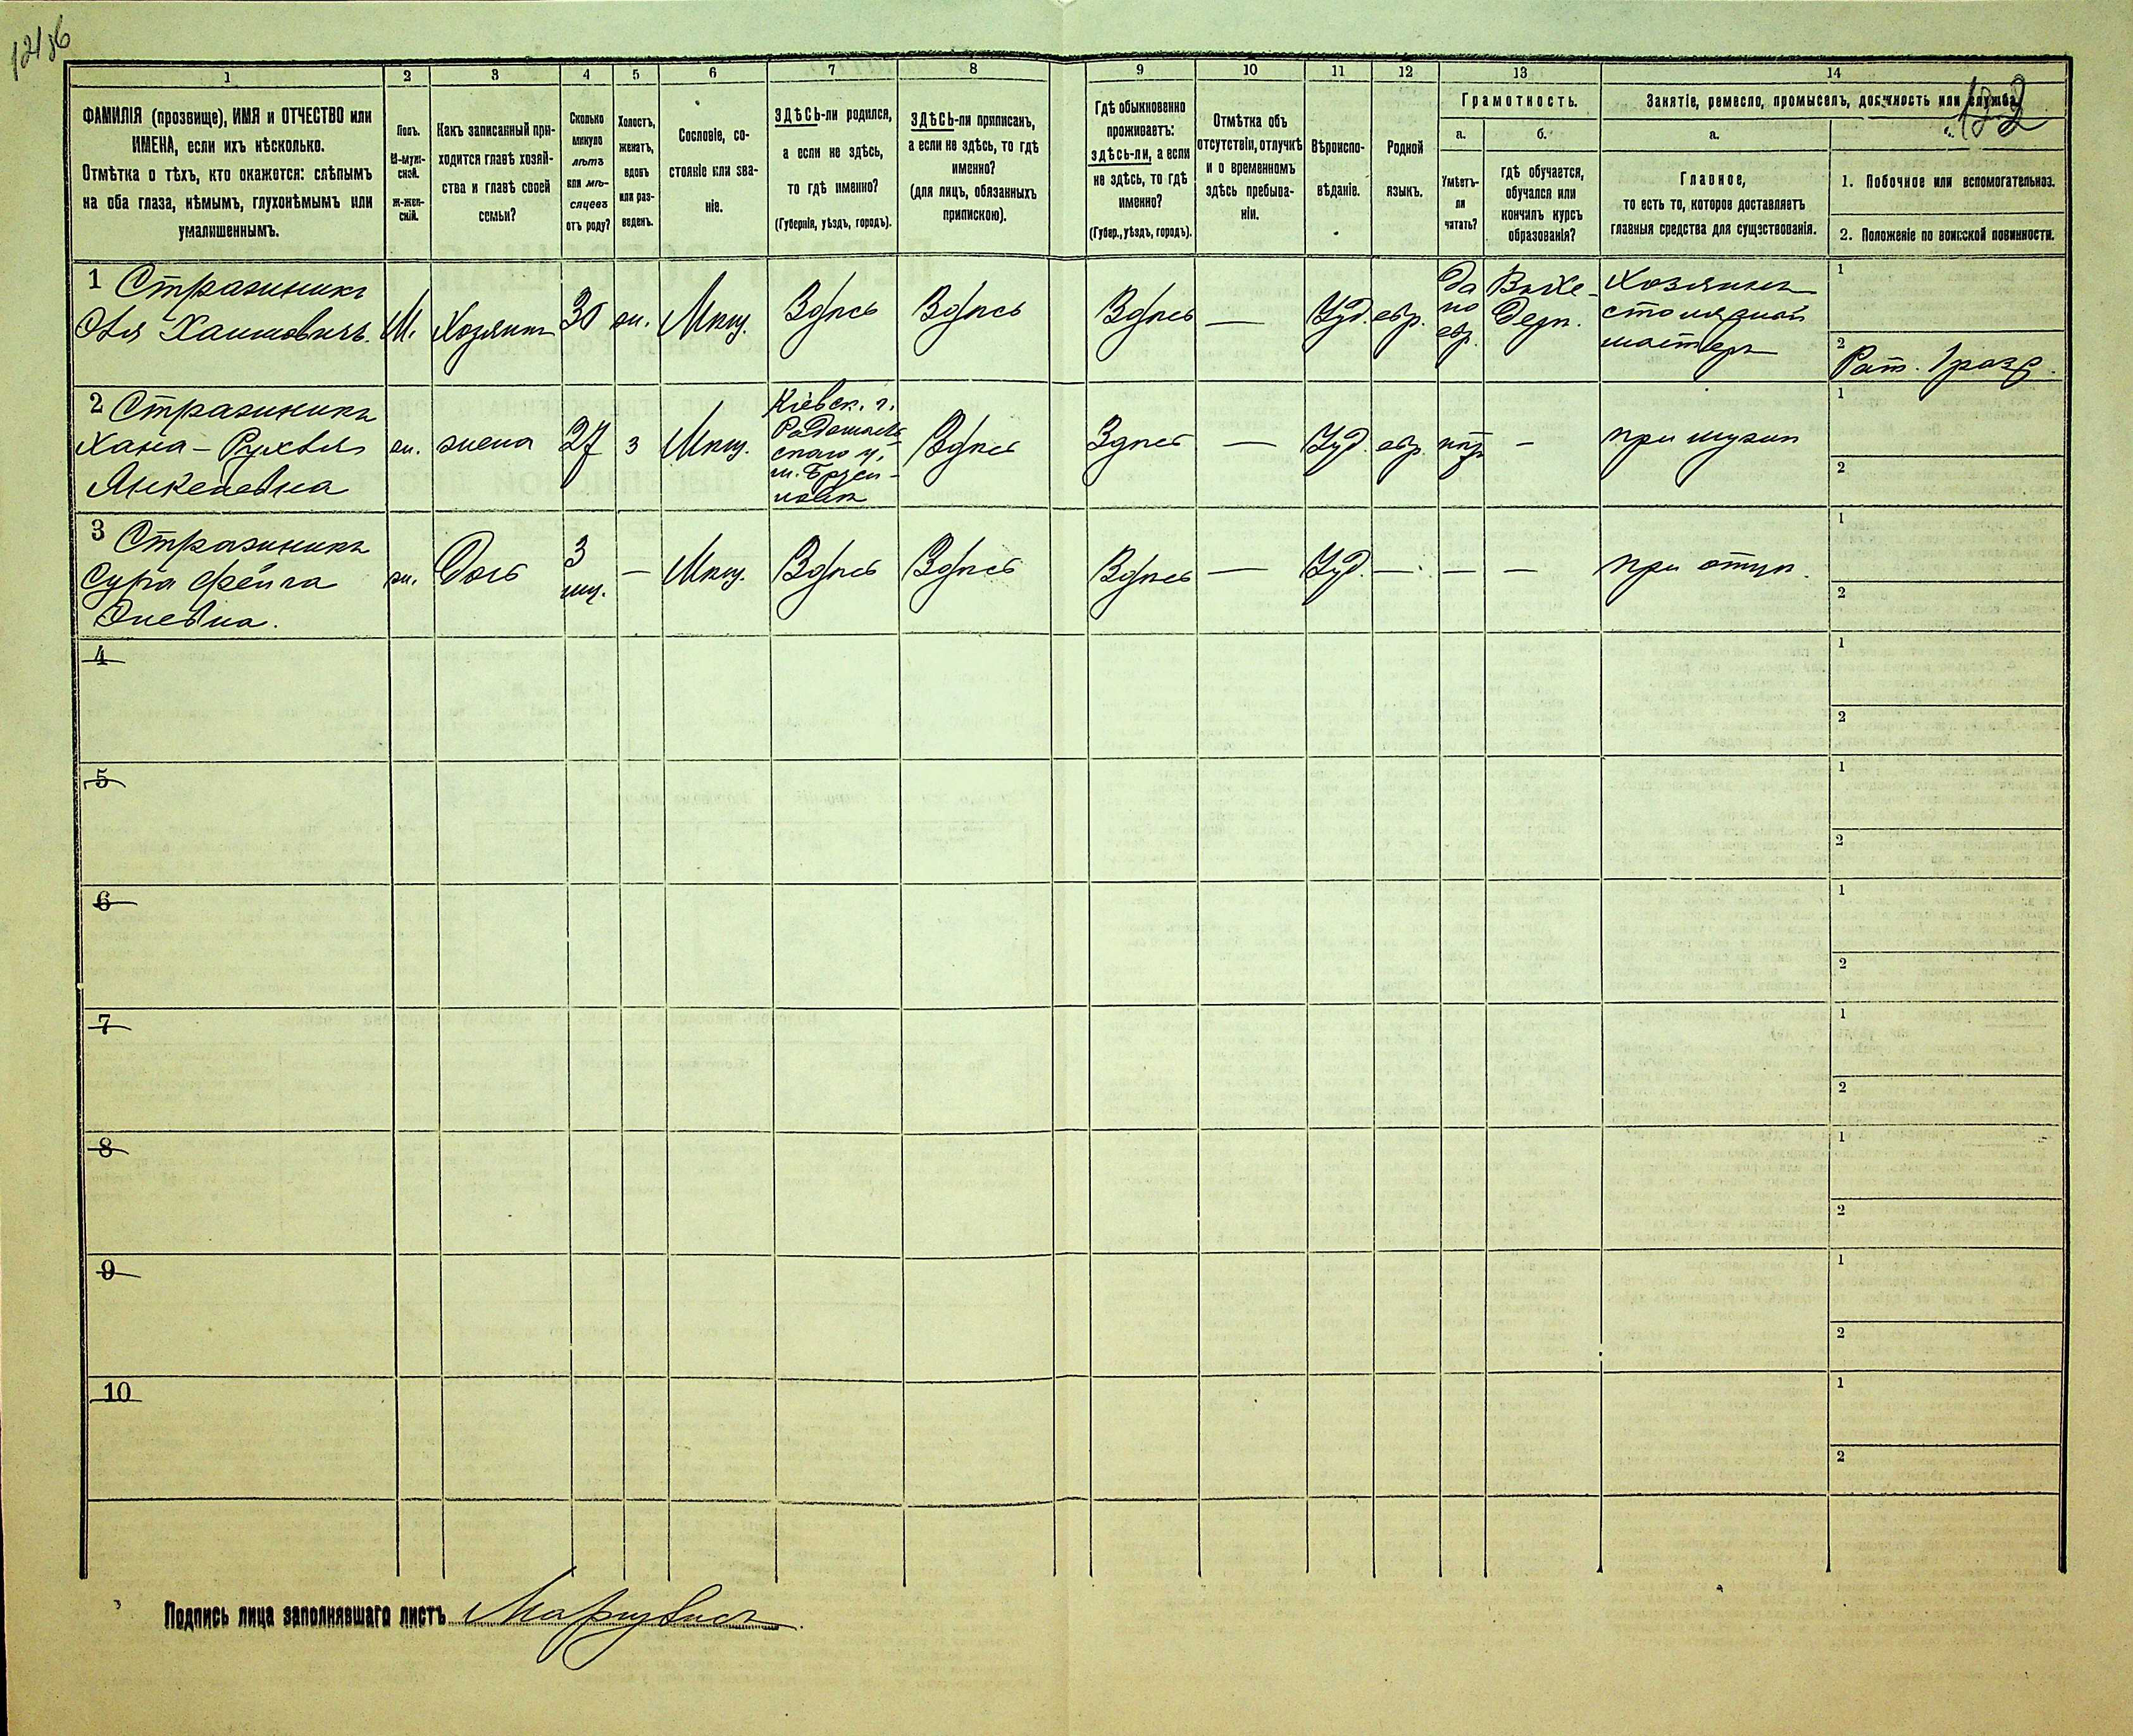 12/86
1 2 3 4 5 6 7 8 9 10 11 12 13 14
122
ФАМИЛІЯ (прозвище), ИМЯ и ОТЧЕСТВО или
ИМЕНА, если ихъ нѣсколько.
Отмѣтка о тѣхъ, кто окажется: слѣпымъ
на оба глаза, нѣмымъ, глухонѣмымъ или
умалишеннымъ.
Полъ.
М-муж-
ской.
ж-жен-
скій.
Какъ записанный при-
ходится главѣ хозяй-
ства и главѣ своей
семьи?
Сколько
минуло
лѣтъ
или мѣ-
сяцевъ
отъ роду?
Холостъ,
женатъ,
вдовъ
или раз-
веденъ.
Сословіе, со-
стояніе или зва-
ніе.
ЗДѢСЬ-ли родился,
а если не здѣсь,
то гдѣ именно?
(Губернія, уѣздъ, городъ).
ЗДѢСЬ-ли приписанъ,
а если не здѣсь, то гдѣ
именно?
(для лицъ, обязанныхъ
припискою).
Гдѣ обыкновенно
проживаетъ:
здѣсь-ли, а если
не здѣсь, то гдѣ
именно?
(Губер., уѣздъ, городъ).
Отмѣтка объ
отсутствіи, отлучкѣ
и о временномъ
здѣсь пребыва-
ніи.
Вѣроиспо-
вѣданіе.
Родной
языкъ.
Грамотность.
а.
Умѣетъ-
ли
читать?
б.
гдѣ обучается,
обучался или
кончилъ курсъ
образованія?
Занятіе, ремесло, промыселъ, должность или служба.
а.
Главное,
то есть то, которое доставляетъ
главныя средства для существованія.
1. Побочное или вспомогательное.
2. Положеніе по воинской повинности.
1 Стражникъ
Овя Хаимовичъ.
М.
Хозяинъ
30
ж.
Мѣщ.
Здѣсь
Здѣсь
Здѣсь
—
Іуд.
евр.
да
по
евр.
Въ Хе-
дерѣ.
Хозяинъ
столярной
мастер.
1
2
Рат. 1 разр.
2 Стражникъ
Хана-Рухвля
Янкелевна
ж.
жена
27
з
Мѣщ.
Кіевск. г.
Радомысль-
скаго у.
м. Брусн-
ловѣ
Здѣсь
Здѣсь
—
Іуд.
евр.
нѣтъ
—
при мужѣ
1
2
3 Стражникъ
Сура Фейга
Овіевна.
ж.
Дочь
3
мц.
—
Мѣщ.
Здѣсь
Здѣсь
Здѣсь
—
Іуд.
—
—
—
при отцѣ.
1
2
4
1
2
5
1
2
6
1
2
7
1
2
8
1
2
9
1
2
10
1
2
Подпись лица заполнявшаго листъ